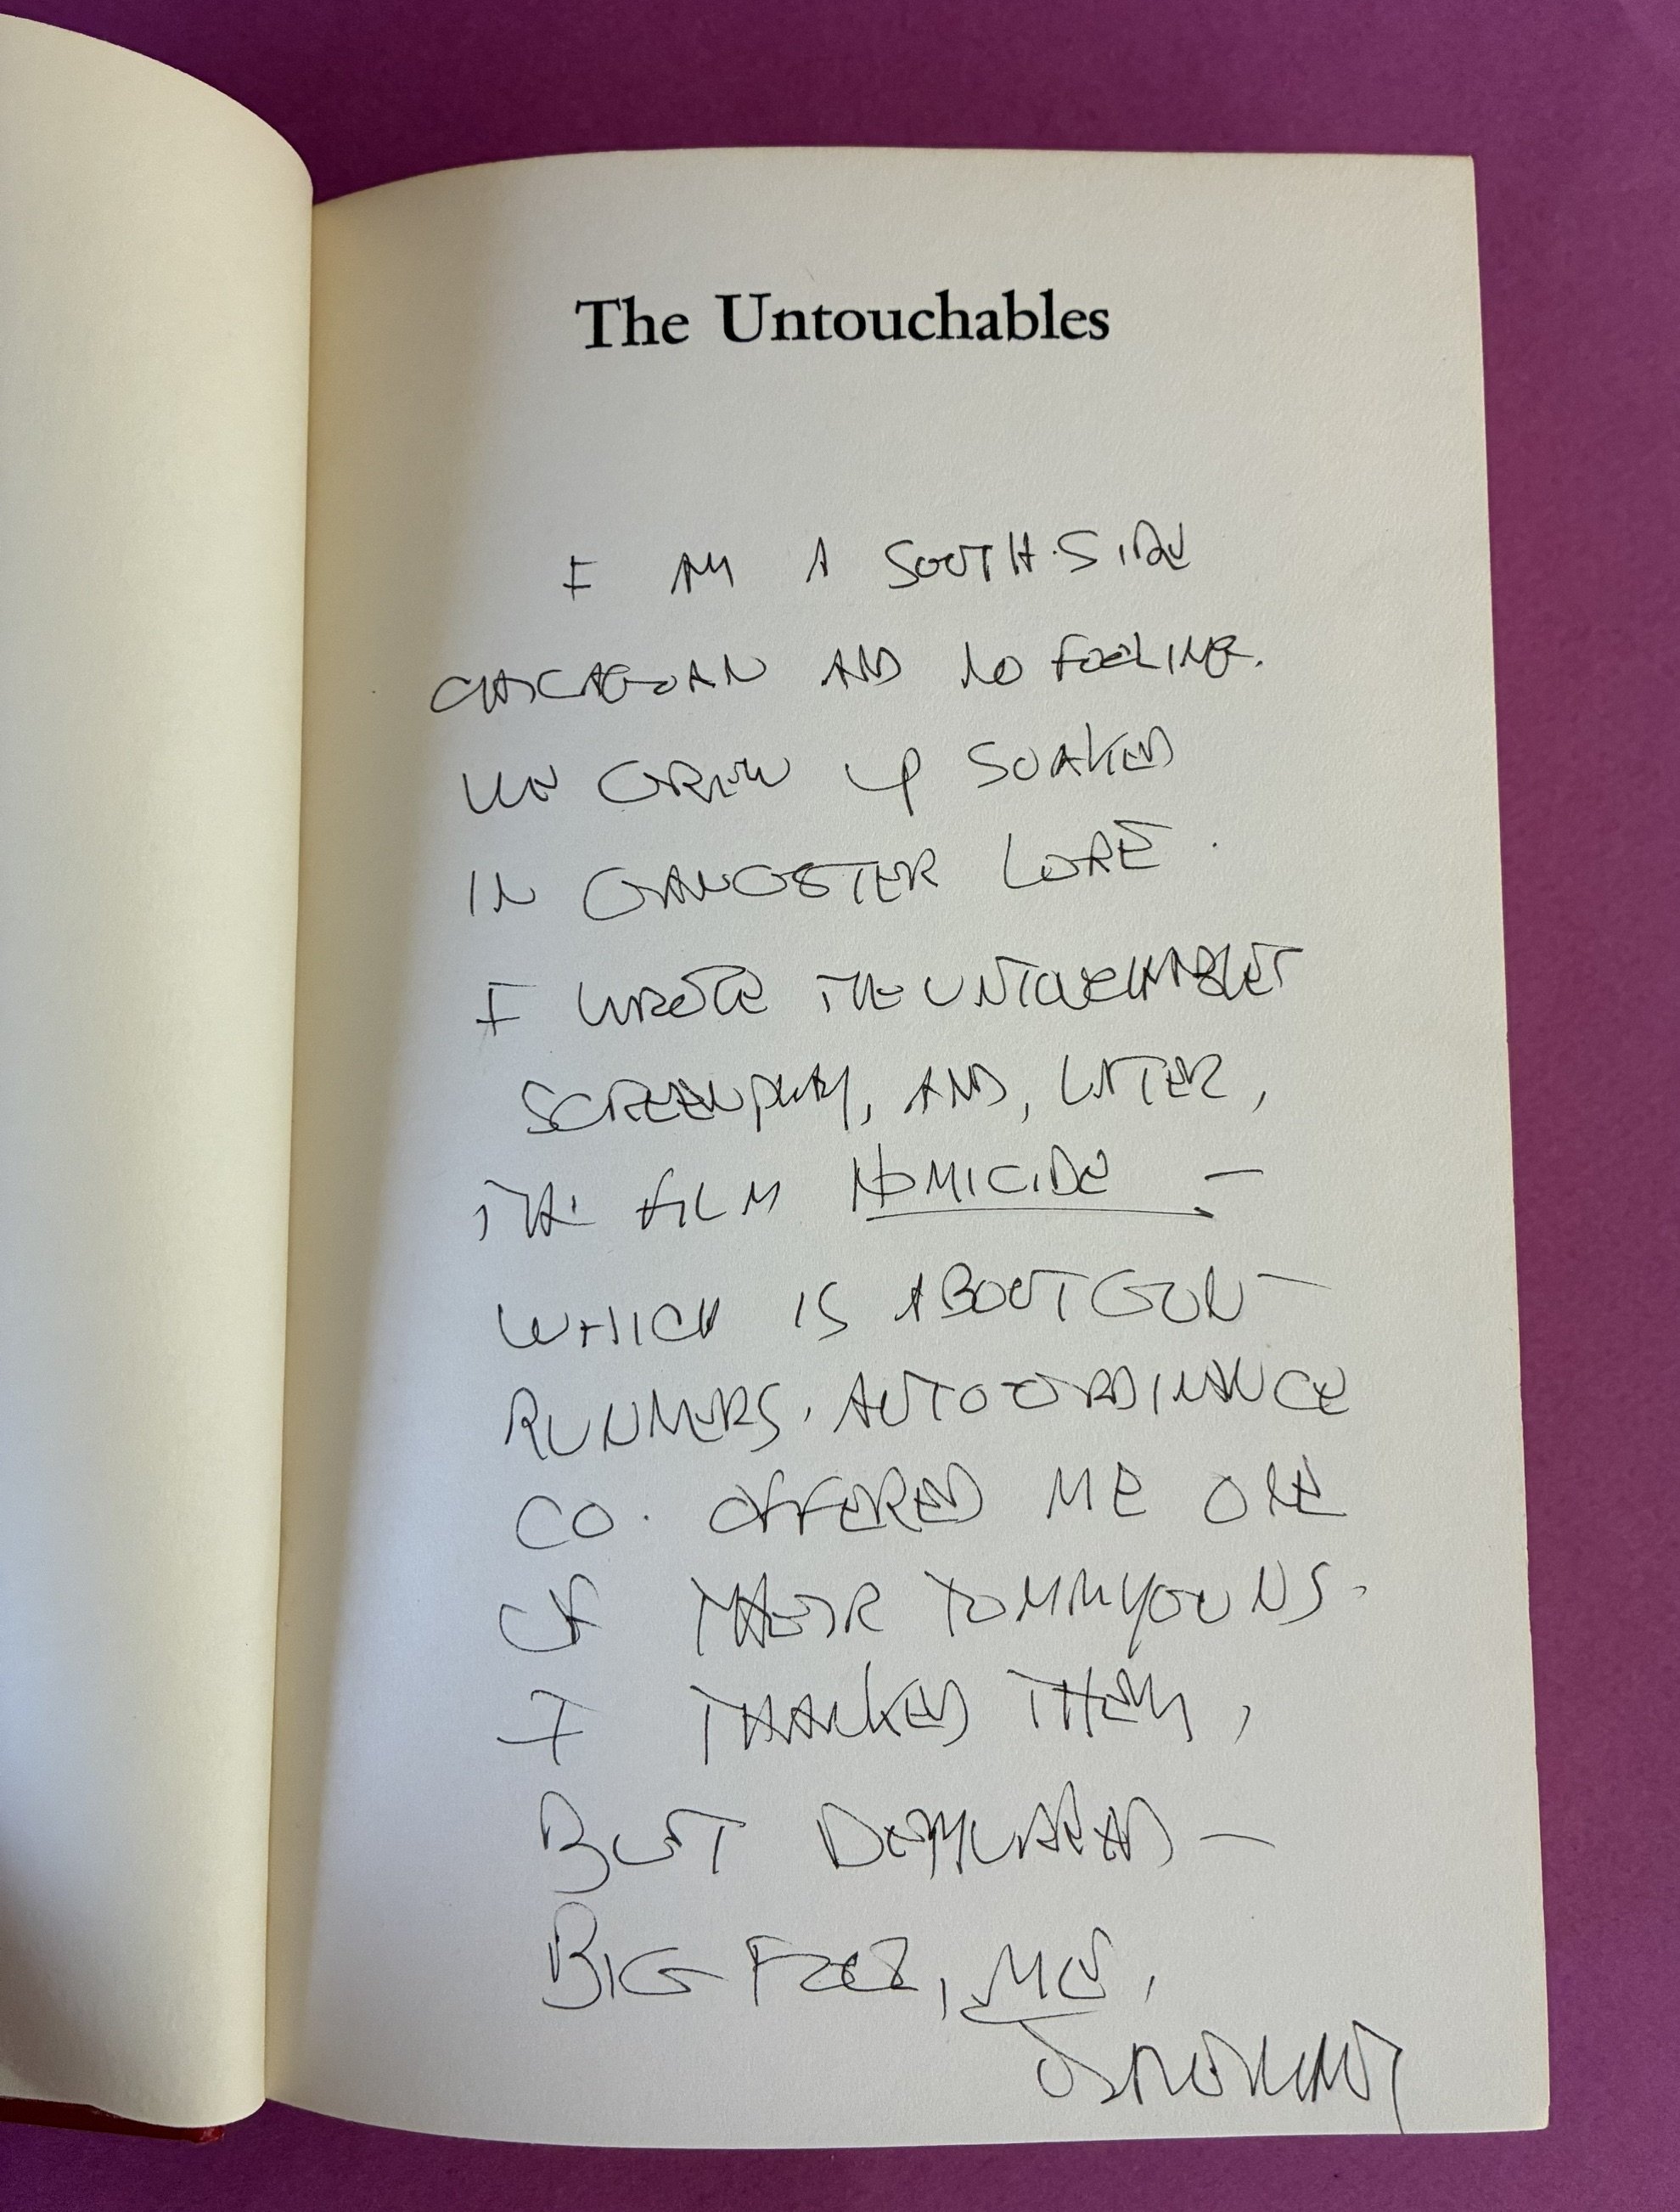 The Untouchables
I AM A SOUTH SIDE
CHICAGOAN AND NO FOOLING.
WE GREW UP SOAKED
IN GANGSTER LORE.
I WROTE THE UNTOUCHABLES
SCREENPLAY, AND, LATER,
THE FILM HOMICIDE —
WHICH IS ABOUT GUN-
RUNNERS. AUTO ORDINANCE
CO. OFFERED ME ONE
OF THEIR TOMMYGUNS.
I THANKED THEM,
BUT DEMURRED —
BIG , ME,